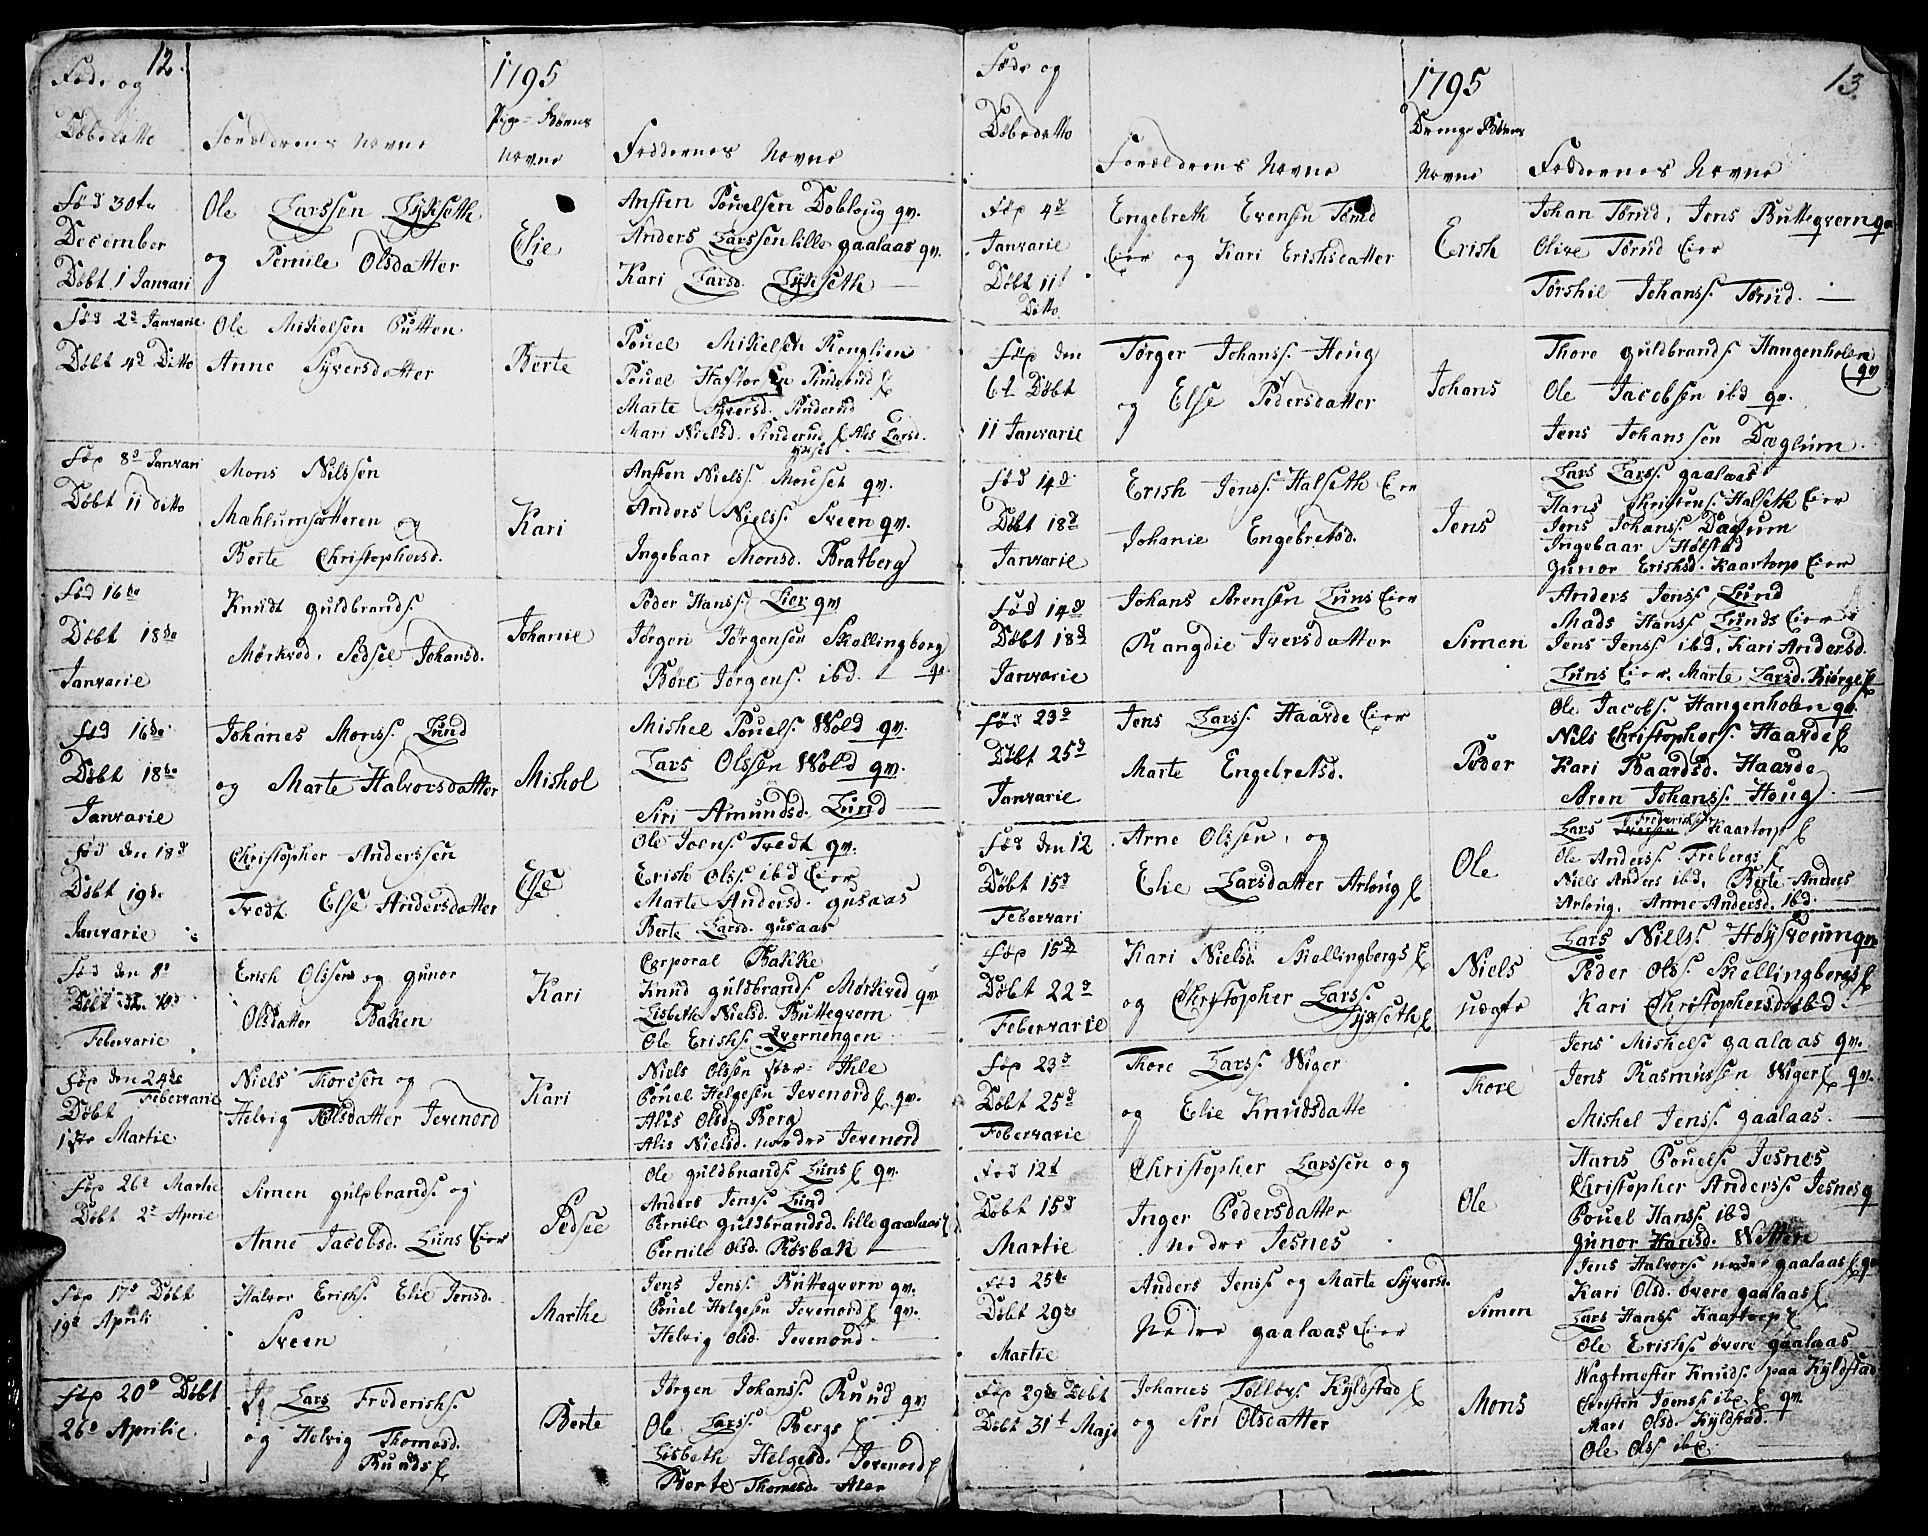 12.
Føds og
Døbedatto
Forældrens Navne
1795
Pige-Børns
Navne
Faddernes Navne
Fød 30te
December
Døbt 1 Janvari
Ole Larssen Lykseth
og Pernile Olsdatter
Elie
Ansten Pouelsen Dobloug gv.
Anders Larssen lille gaalaas gv.
Kari Larsd. Lykseth
Fød 2d Janvarie
Døbt 4d Ditto
Ole Mikelsen Putten
Anne Syversdatter
Berte
Pouel Mikelsen Ronglien
Pouel Haftorsen Pinderud
Marte Syversd. Pinderud
Mari Nielsd. Pinderud Alis Larsd.
Fød 8d Janvari
Døbt 11 ditto
Mons Nilssen
Mæhlumsætteren og
Berte Christophersd.
Kari
Ansten Nielss. Mouset gv.
Anders Nielss. Sveen gv.
Ingebaar Monsd. Bratberg
Fød 16de
Døbt 18de
Janvarie
Knudt guldbrands.
Mørkved. Sedsel Johansd.
Johanie
Peder Hanss. Lier gv
Jørgen Jørgensen Skollingborg
Børe Jørgens. ibd.
Fød 16de
Døbt 18de
Janvarie
Johanes Monss. Lund
og Marte Halvorsdatter
Mishol
Mishel Pouels. Wold gv.
Lars Olssen Wold gv.
Siri Amundsd. Lund
Fød den 18d
Døbt 19de
Janvarie
Christopher Anderssen
Tredt Else Andersdatter
Else
Ole Joens. Tredt gv.
Erish Olss. ibd Eier
Marte Andersd. gusaas
Berte Larsd. gusaas
Fød den 8d
Døbt
Febervarie
Erish Olssen og gunor
Olsdatter Baken
Kari
Corporal Bakke
Knud guldbrands. Mørkved gv
Lisbeth Nielsd. Buttegvern
Ole Erishs. Qvernengen
Fød den 24de
Febervarie
Døbt
1ste Martie
Niels Thoresen og
Helvig Olsdatter Jevenord
Kari
Niels Olssen Ihle
Pouel Helgesen Jevenord gv.
Alis Olsd. Berg
Alis Nielsd. nordre Jevenord
Fød 26d Martie
Døbt 2d Aprie
Simen gulbrands. og
Anne Jacobsd. Luns Eier
Sedsee
Ole guldbrands. Luns gv.
Anders Jenss. Lund
Pernile guldbrandsd. lille gaalaas
Pernile Olsd. Røsbak
Fød 17d Døbt
19d Aprili
Halvor Erichs. Elie Jensd.
Sveen
Marthe
Jens Jenss. Buttegvern gv.
Pouel Helgesen Jevenord gv.
Helvig Olsd. Jevenord
Fød 20d Døbt
26d Aprilie
Lars Frederichs.
og Helvig Thomasd.
Ruuds
Berte
Jørgen Johanss. Ruud gv
Ole Larss. Bergs
Lisbeth Helgesd. Jevenord
Berte Thomesd. Aler
13.
Føds og
Døbedatto
Forældrens Navne
1795
Drenge Børns
Navne
Faddernes Navne
Fød 4d
Janvarie
Døbt 11t
Ditto
Engebreth Evensen Tørud
Eier og Kari Erishsdatter
Erish
Johan Tørud, Jens Buttegvern gv
Olive Tørud Eier
Tørshil Johanss. Tørud.
Fød den
6t Døbt
11 Janvarie
Tørger Johanss. Houg
og Else Pedersdatter
Johans
Thore guldbrands. Hangenholen
gv
Ole Jacobsen ibd gv.
Jens Johanssen Dæglum.
Fød 14d
Døbt 18d
Janvarie
Erish Jenss. Halseth Eier
Johanie Engebretsd.
Jens
Lars Larss. gaalaas
Hans Christens. Halseth Eier
Jens Johanss. Daglum
Ingebaar Hølstad
gunor Erishsd. Kaartorp Eier
Fød 14d
Døbt 18d
Janvarie
Johans Sørensen Luns Eier
Rangdie Iversdatter
Simen
Anders Jenss. Lund
Mads Hanss. Lunds Eier
Jens Jenss. ibd, Kari Andersd.
Luns Eier, Marte Larsd. Biørge
Fød 23d
Døbt 25d
Janvarie
Jens Larss. Haarde Eier
Marte Engelretsd.
Peder
Ole Jacobs. Hangenholen gv.
Nils Christophers. Haarde
Kari Baardsd. Haarde
Søren Johanss. Houg
Fød den 12
Døbt 15d
Febervari
Arne Olssen, og
Elie Larsdatter Arloug
Ole
Lars Frederichs. Kaartorp
Ole Anderss. Frebergs
Niels Anders ibd, Berte Anders
Arloug, Anne Andersd. ibd.
Fød 15d
Døbt 22d
Febervarie
Kari Nielsd. Skellingbergs
og Christopher Larss.
Lykseth
Niels
Uægte
Lars Nielss. Høysveum gv
Peder Olss. Skellingbergs
Kari Christophersd. ibd
Fød 23d
Døbt 25d
Febervarie
Thore Larss. Wiger
og Elie Knudsdatte
Thore
Jens Mishels. gaalaas gv.
Jens Rasmussen Wiger gv.
Mishel Jenss. gaalaas.
Fød 12t
Døbt 15d
Martie
Christopher Larssen og
Inger Pedersdatter
nedre Jesnes
Ole
Hans Pouels. Jesnes
Christopher Anderss. Jesnes g
Pouel Hanss. ibd
gunor Hansd. Wetten
Fød 25de
Døbt 29de
Martie
Anders Jenss. og Marte Syversd.
Nedre gaalaas Eier
Simen
Jens Halvors. nedre gaalaas gv
Kari Olsd. øvere gaalaas
Lars Hanss. Kaartorp
Ole Erishs. øvere gaalaas
Fød 29de Døbt
Døbt 31t Maji
Johanes Tollors. Kyldstad
og Siri Olsdatter
Mons
Wagtmester Knuds. paa Kyldstad
Christen Joenss. ibd gv.
Mari Olsd. Kyldstad.
Ole Olss. ibd